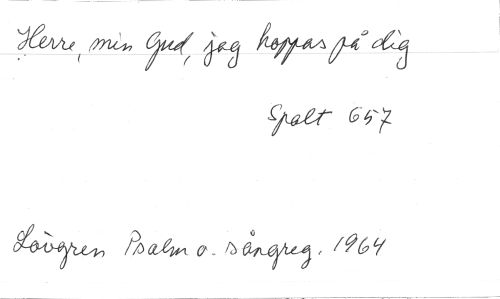 Herre, min Gud, jag hoppas på dig
Spalt 657
Lövgren Psalm o. sångreg. 1964